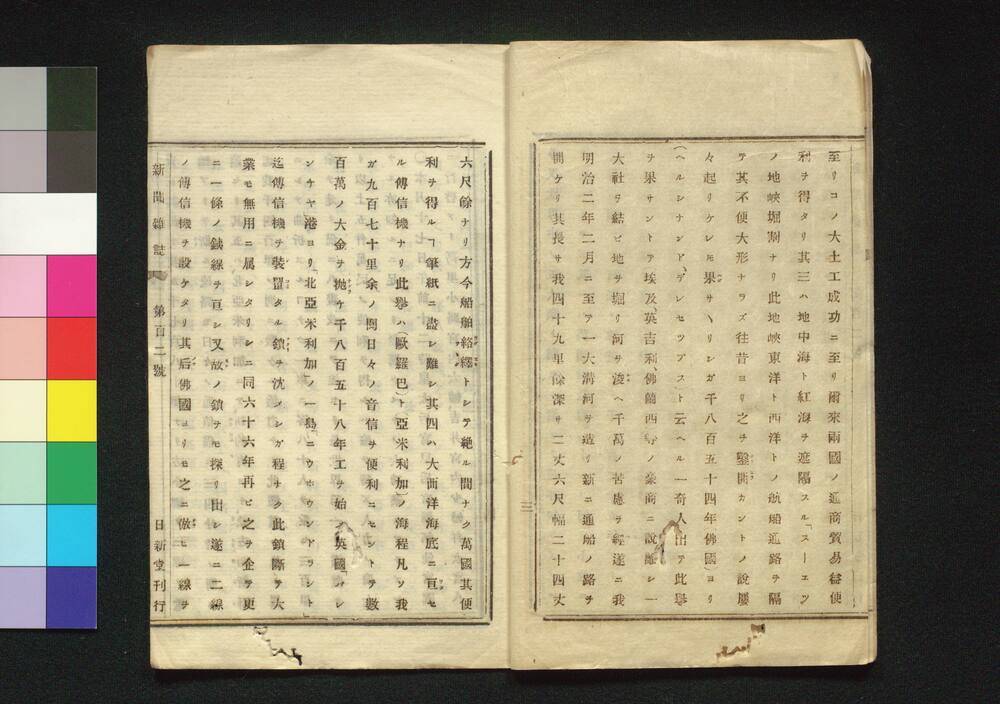 至リコノ大土工成功ニ至リ爾來兩國ノ通商貿易益便
利ヲ得タリ其三ハ地中海ト紅海ヲ遮隔スル「スーエツ
ノ地峽堀割ナリ此地峽東洋ト西洋トノ航船通路ヲ隔
テ其不便大形ナラズ往昔ヨリ之ヲ鑿開カントノ説屢
々起リケレ𪜈果サヽリシガ千八百五十四年佛國」ヨリ
(ヘルシナンド、デレセツプス)ト云ヘル一奇人出テ此擧
ヲ果サント埃及、英吉利、佛蘭西等ノ豪商ニ説諭シ一
大社ヲ結ビ地ヲ堀リ河ヲ浚ヘ千萬ノ苦慮ヲ經遂ニ我
明治二年二月ニ至テ一大溝河ヲ造リ新ニ通船ノ路ヲ
開ケリ其長サ我四十九里餘深サ二丈六尺幅二十四丈
三
六尺餘ナリ方今船舶絡繹トシテ絶ル間ナク萬國其便
利ヲ得ルヿ筆紙ニ盡シ難シ其四ハ大西洋海底ニ亘セ
ル傳信機ナリ此擧ハ(歐羅巴)ト亞米利加)ノ海程凡ソ我
ガ九百七十里余ノ間日々ノ音信ヲ便利ニセントテ數
百萬ノ大金ヲ抛チ千八百五十八年工ヲ始メ英國「バレ
ンチヤ港ヨリ「北亞米利加ノ一島」ニウホウンドランド」
迄傳信機ヲ裝置タル鎖ヲ沈メシガ程ナク此鎖斷テ大
業モ無用ニ属シタリシニ同六十六年再ビ之ヲ企テ更
ニ一條ノ鉄線ヲ亘シ又故ノ鎖ヲモ探リ出シ遂ニ二線
ノ傳信機ヲ設ケタリ其后佛國ヨリモ之ニ倣ヒ一線ヲ
新聞雜誌 第百二號 日新堂刊行